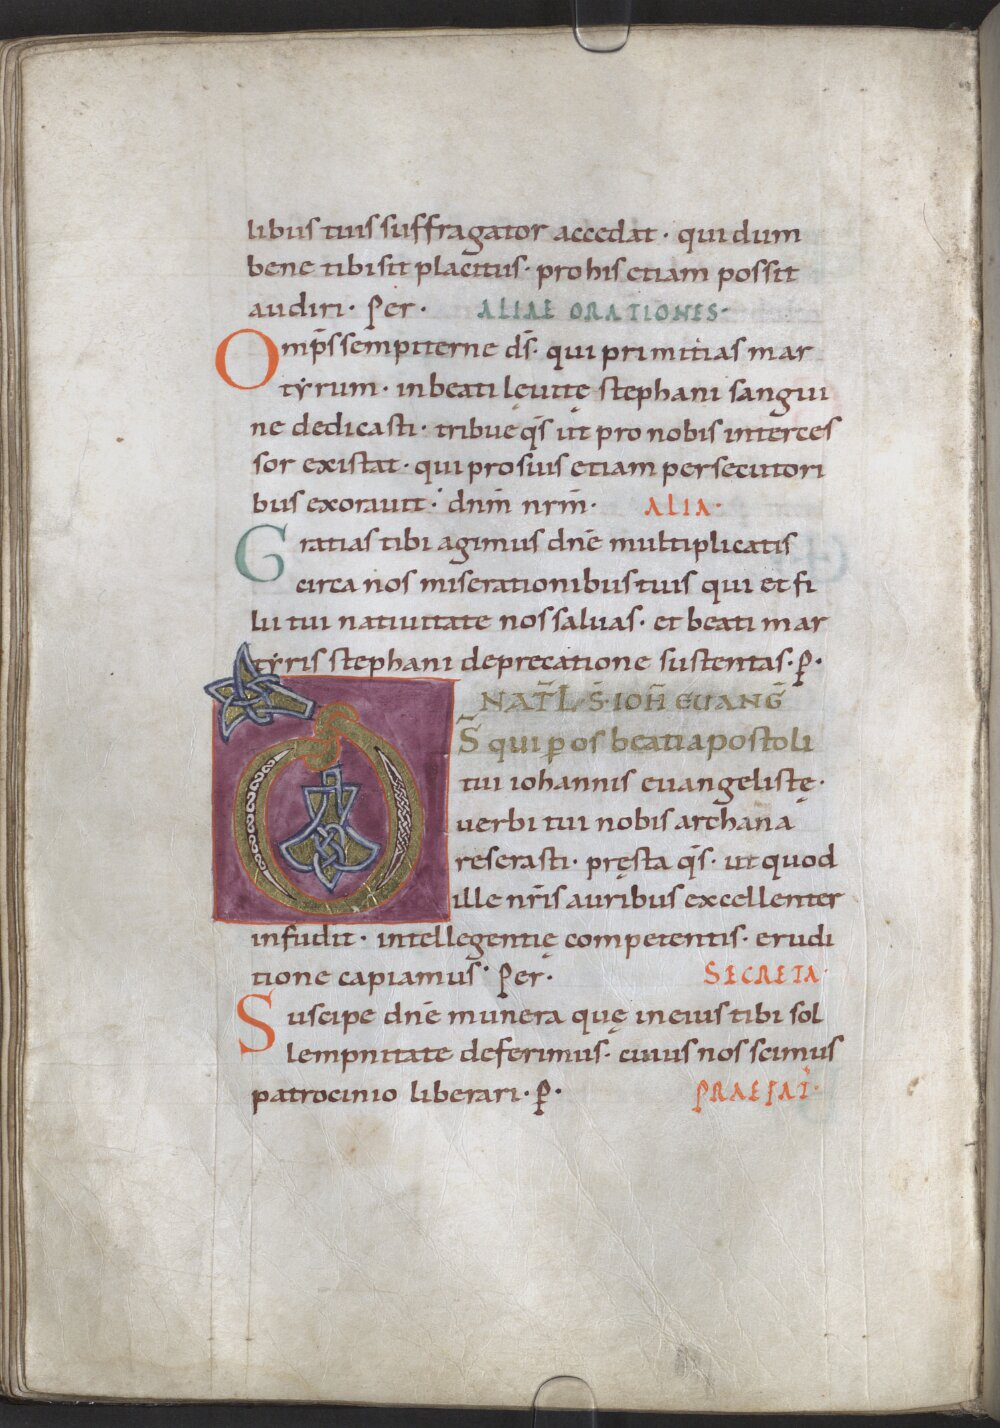 libus tuis suffragator accedat · qui dum
bene tibi sit placitus · pro his etiam possit
audiri · Per · ALIAE ORATIONES ·
Omp̄s sempiterne d̄s · qui primitias mar
tẏrum · in beati lęuitę stephani sangui
ne dedicasti · tribue q̄s ut pro nobis interces
sor existat · qui pro suis etiam persecutori
bus exorauit · dnm̄ nrm̄ · ALIA ·
Gratias tibi agimus dnē multiplicatis
circa nos miserationibus tuis qui et fi
lii tui natiuitate nos saluas · et beati mar
tẏris stephani deprecatione sustentas · P̄ ·
NAT̄L S̄ · IOH̄ EUANḠ
DS̄ qui p os beati apostoli
tui iohannis euangelistę ·
uerbi tui nobis archana
reserasti · pręsta q̄s · ut quod
ille nr̄is auribus excellenter
infudit · intellegentię competentis · erudi
tione capiamus · Per · SECRETA ·
Suscipe dnē munera quę in eius tibi sol
lempnitate deferimus · cuius nos scimus
patrocinio liberari · P̄ · PRAEFAT̄ ·